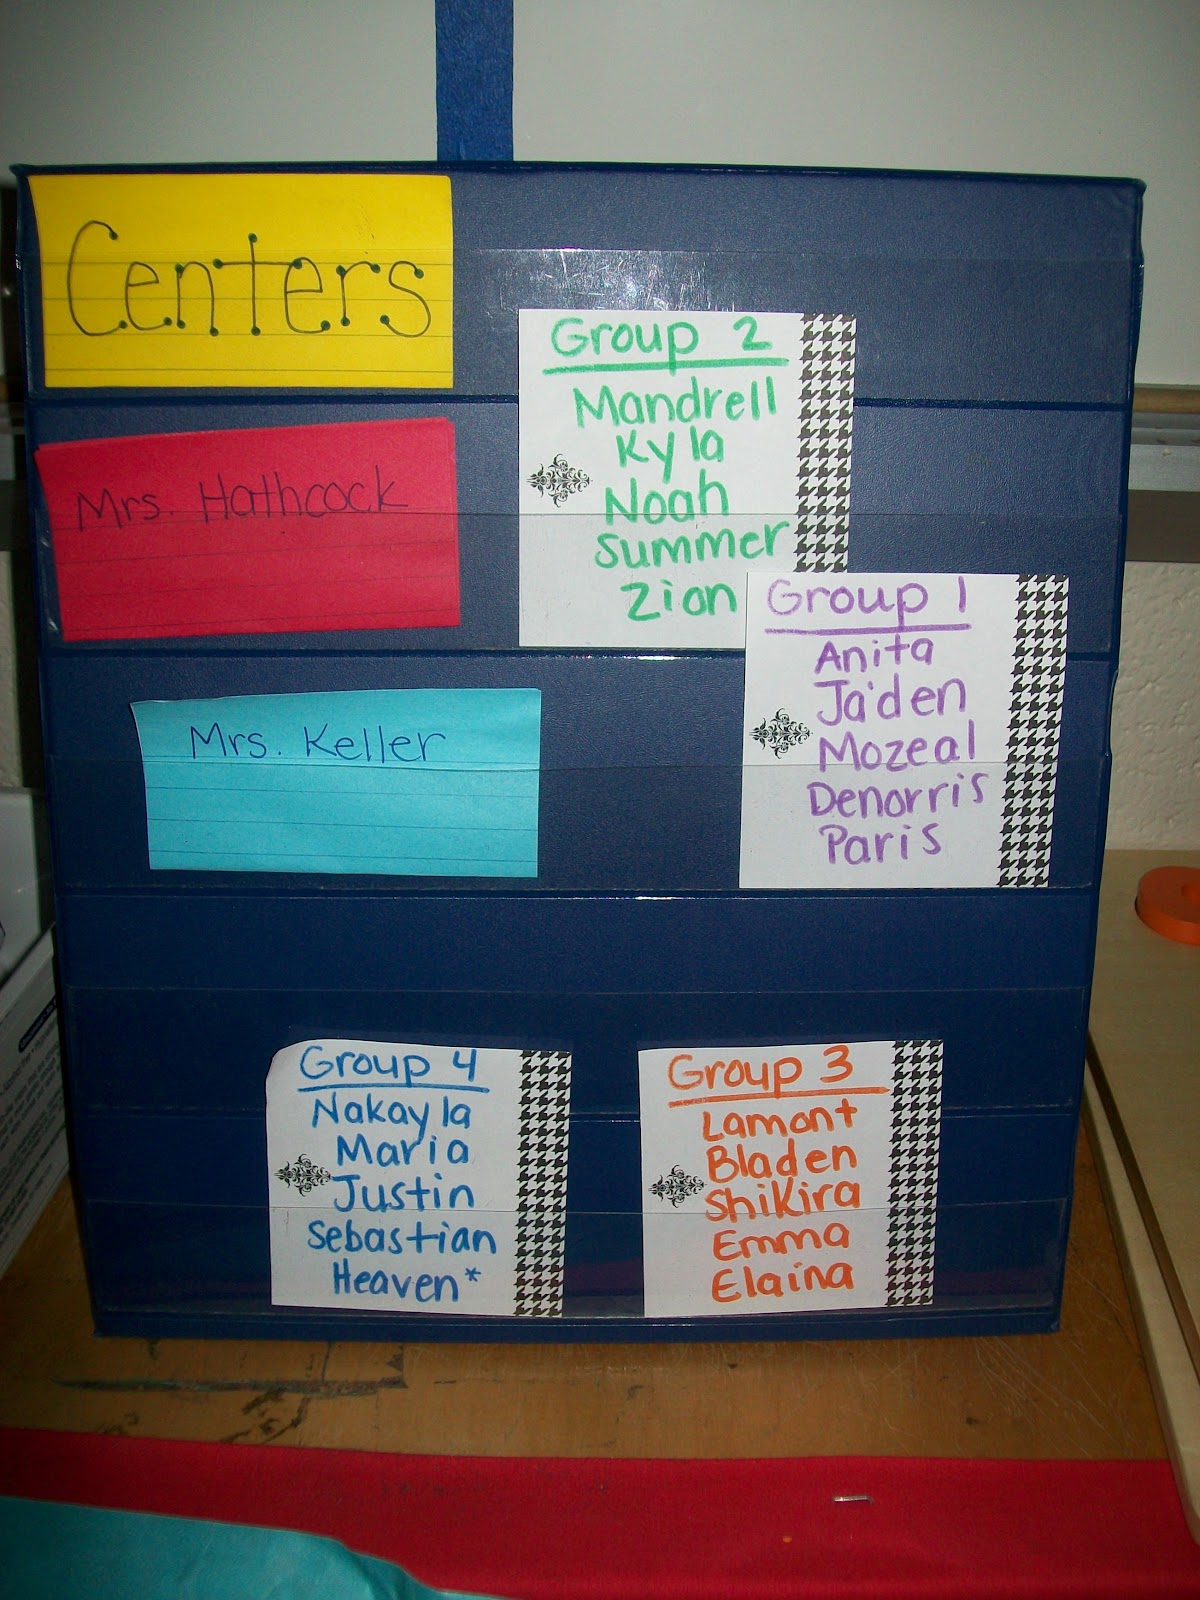 Centers
Mrs. Hathcock
Mrs. Keller
Group 2
Mandrell
Kyla
Noah
Summer
Zion
Group 1
Anita
Ja'den
Mozeal
Denorris
Paris
Group 4
Nakayla
Maria
Justin
Sebastian
Heaven*
Group 3
Lamont
Bladen
ShiKira
Emma
Elaina